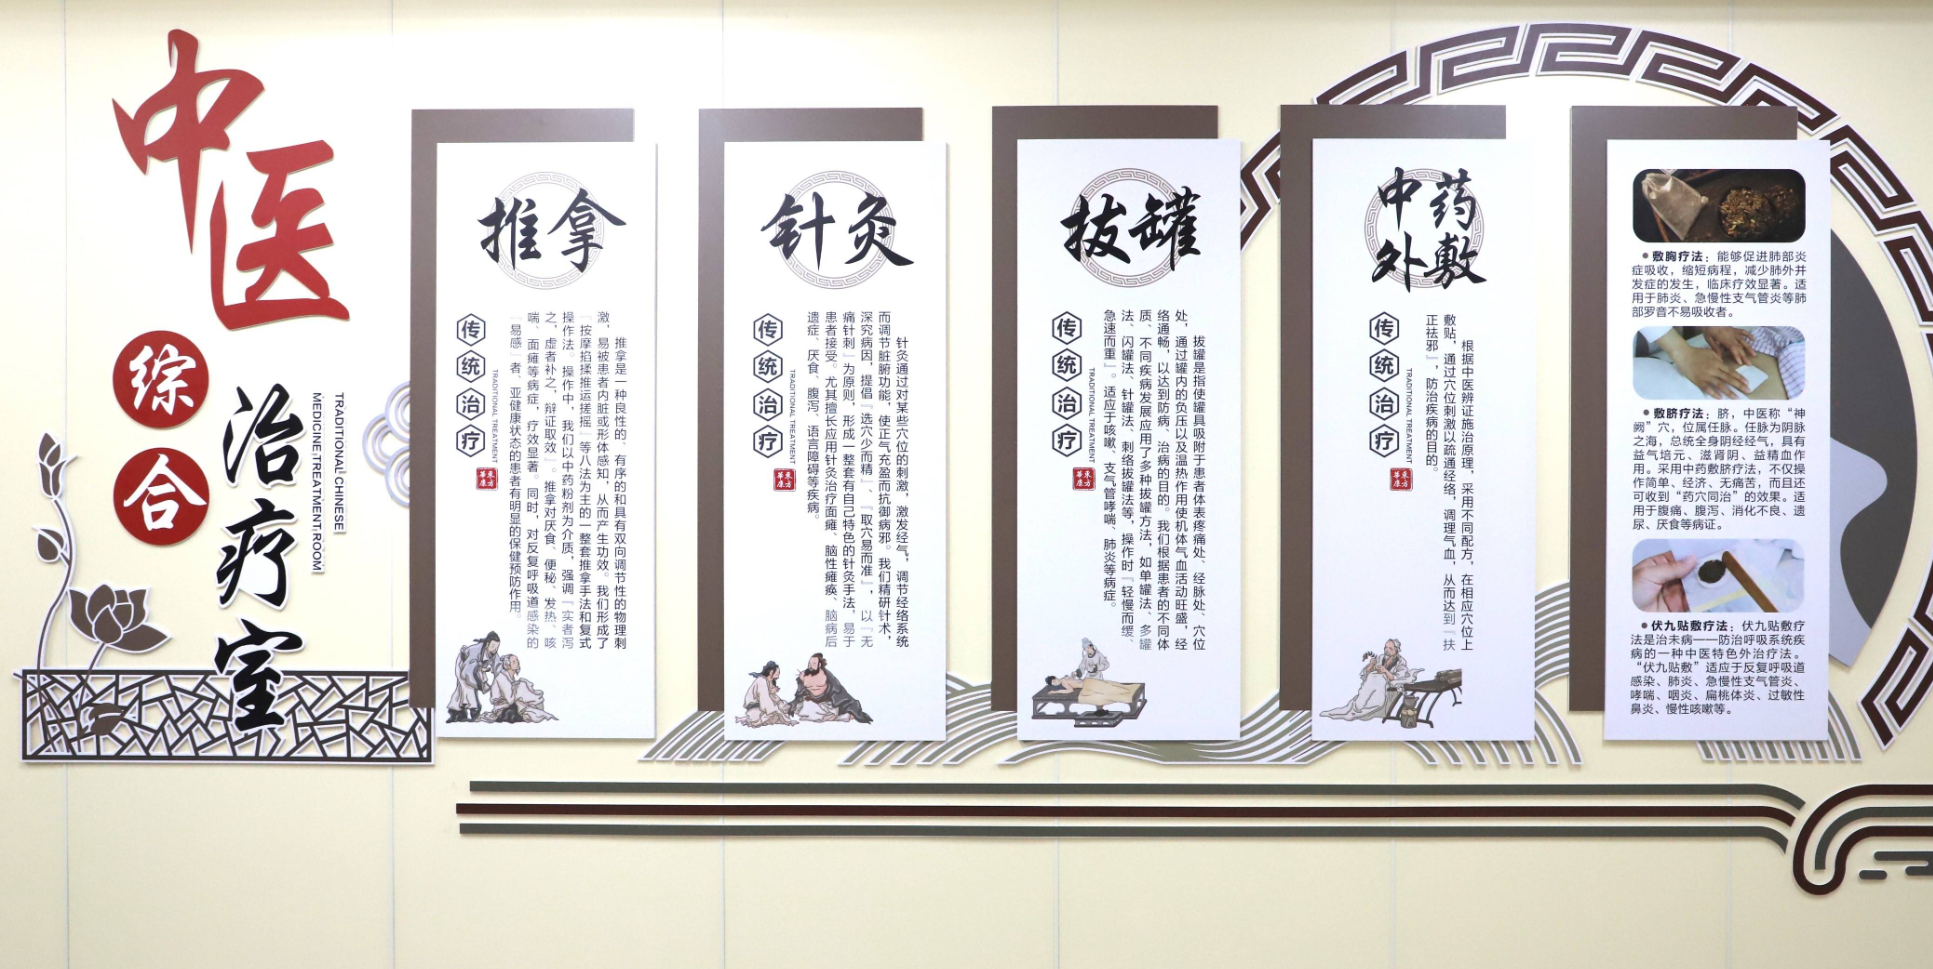 中医
综合
治疗室
TRADITIONAL CHINESE
MEDICINE TREATMENT ROOM
推拿
传统治疗
TRADITIONAL TREATMENT
東方
華康
推拿是一种良性的、有序的和具有双向调节性的物理刺
激，易被患者内脏或形体感知，从而产生功效。我们形成了
『按摩掐揉推运搓摇』等八法为主的一整套推拿手法和复式
操作法。操作中，我们以中药粉剂为介质，强调『实者泻
之，虚者补之，辩证取效』。推拿对厌食、便秘、发热、咳
喘、面瘫等病症，疗效显著。同时，对反复呼吸道感染的
『易感』者、亚健康状态的患者有明显的保健预防作用。
针灸
传统治疗
TRADITIONAL TREATMENT
東方
華康
针灸通过对某些穴位的刺激，激发经气，调节经络系统
而调节脏腑功能，使正气充盈而抗御病邪。我们精研针术，
深究病因，提倡『选穴少而精』、『取穴易而准』，以『无
痛针刺』为原则，形成一整套有自己特色的针灸手法，易于
患者接受。尤其擅长应用针灸治疗面瘫、脑性瘫痪、脑病后
遗症、厌食、腹泻、语言障碍等疾病。
拔罐
传统治疗
TRADITIONAL TREATMENT
東方
華康
拔罐是指使罐具吸附于患者体表疼痛处、经脉处、穴位
处，通过罐内的负压以及温热作用使机体气血活动旺盛，经
络通畅，以达到防病、治病的目的。我们根据患者的不同体
质、不同疾病发展应用了多种拔罐方法，如单罐法、多罐
法、闪罐法、针罐法、刺络拔罐法等，操作时『轻慢而缓、
急速而重』。适应于咳嗽、支气管哮喘、肺炎等病症。
中药
外敷
传统治疗
TRADITIONAL TREATMENT
東方
華康
根据中医辨证施治原理，采用不同配方，在相应穴位上
敷贴，通过穴位刺激以疏通经络，调理气血，从而达到『扶
正祛邪』，防治疾病的目的。
●敷胸疗法：能够促进肺部炎
症吸收，缩短病程，减少肺外并
发症的发生，临床疗效显著。适
用于肺炎、急慢性支气管炎等肺
部罗音不易吸收者。
●敷脐疗法：脐，中医称“神
阙”穴，位属任脉。任脉为阴脉
之海，总统全身阴经经气，具有
益气培元、滋肾阴、益精血作
用。采用中药敷脐疗法，不仅操
作简单、经济、无痛苦，而且还
可收到“药穴同治”的效果。适
用于腹痛、腹泻、消化不良、遗
尿、厌食等病证。
●伏九贴敷疗法：伏九贴敷疗
法是治未病——防治呼吸系统疾
病的一种中医特色外治疗法。
“伏九贴敷”适应于反复呼吸道
感染、肺炎、急慢性支气管炎、
哮喘、咽炎、扁桃体炎、过敏性
鼻炎、慢性咳嗽等。